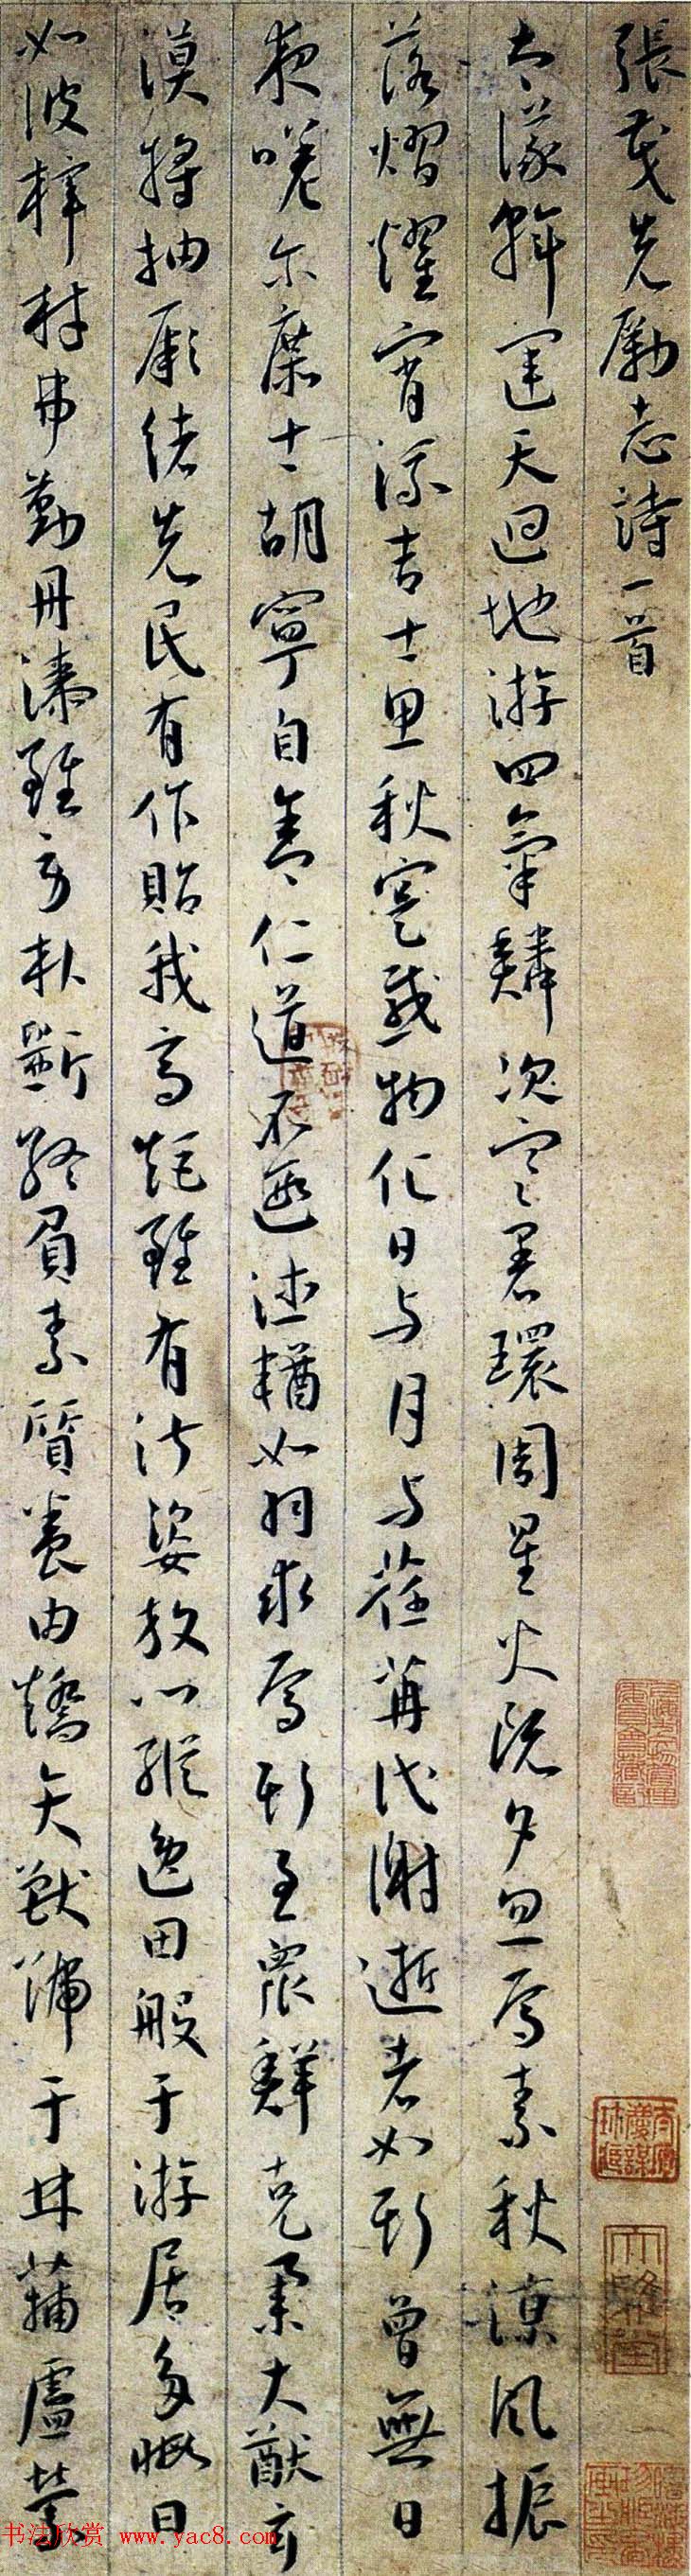 張茂先勵志詩一首
大儀斡運天迴地游四氣鱗次寒暑環周星火既夕忽焉素秋涼風振
落熠燿宵流吉士思秋寔感物化日与月与荏苒代謝逝者如斯曾無日
夜嗟尔庶士胡寧自舍仁道不遐德輶如羽求焉斯至眾鮮克舉大猷玄
漠將抽厥緒先民有作貽我高矩雖有淑姿放心縱逸田般于游居多暇日
如彼梓材弗勤丹漆雖勞朴斲終負素質養由矯矢獸號于林蒲盧縈
书法欣赏 www.yac8.com